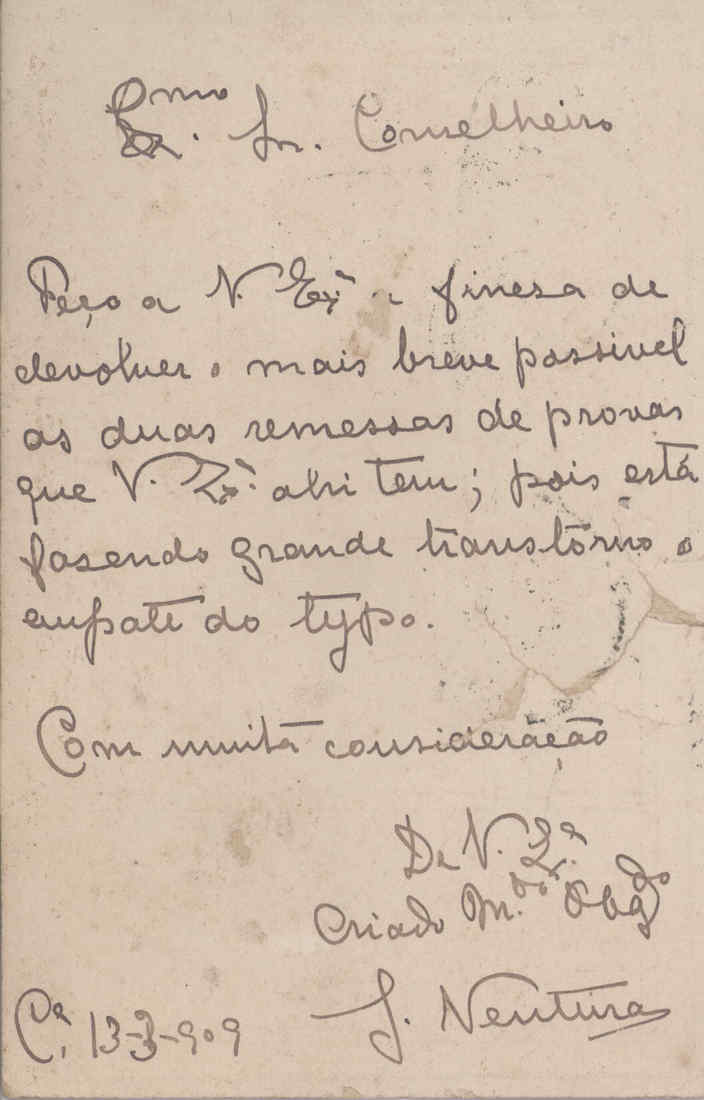 Exmo. Sr. Conselheiro
Peço a V. Exª a finesa de
devolver o mais breve possivel
as duas remessas de provas
que V. Exª. ahi tem; pois está
fasendo grande transtorno o
empate do typo.
Com muita consideração
De V. Exª.
Criado M.to Obgdo
J. Ventura
Cª. 13-3-909